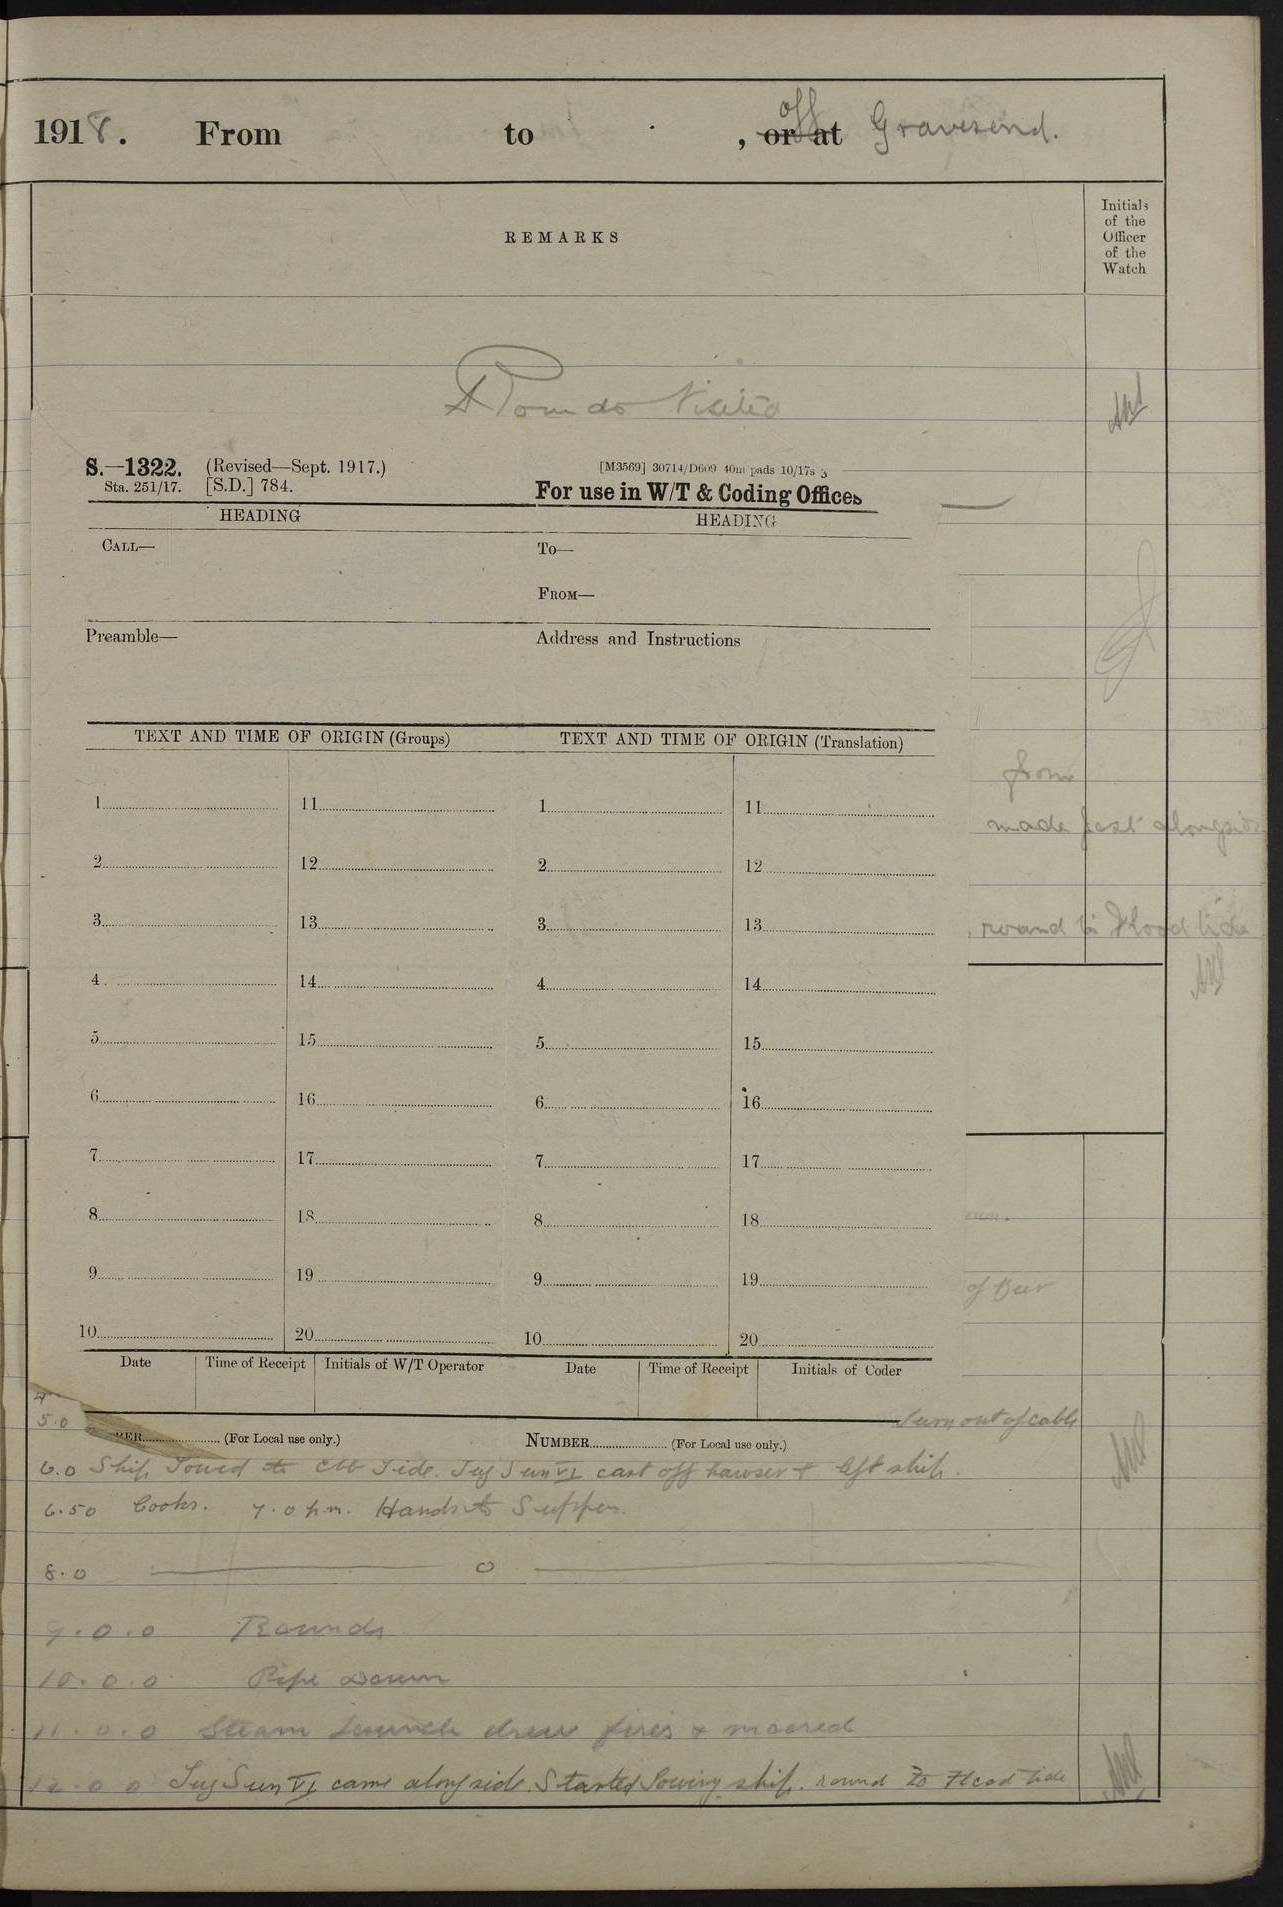 1918. From to , or at off Gravesend.
REMARKS
Initials of the Officer of the Watch
Visited
S.—1322. (Revised—Sept. 1917.) [M3569] 30714/D609 40m pads 10/17s
Sta. 251/17. [S.D.] 784. For use in W/T & Coding Offices
HEADING HEADING
CALL— To—
FROM—
Preamble— Address and Instructions
TEXT AND TIME OF ORIGIN (Groups) TEXT AND TIME OF ORIGIN (Translation)
from
1 11 1 11
made fast alongside
2 12 2 12
3 13 3 13
round to Flood tide
4 14 4 14
5 15 5 15
6 16 6 16
7 17 7 17
8 18 8 18
9 19 9 19
of Beer
10 20 10 20
Date Time of Receipt Initials of W/T Operator Date Time of Receipt Initials of Coder
5.0 turn out of cable
BER (For Local use only.) NUMBER (For Local use only.)
6.0 Ship Towed to Ebb Tide. Tug Sun VI cast off hawser + left ship.
6.50 Cooks. 7.0 p.m. Hands to Supper.
8.0 o
9.0.0 Rounds
10.0.0 Pipe Down
11.0.0 Steam Launch drew fires & moored
12.0 0 Tug Sun VI came alongside. Started Towing ship. round to Flood tide